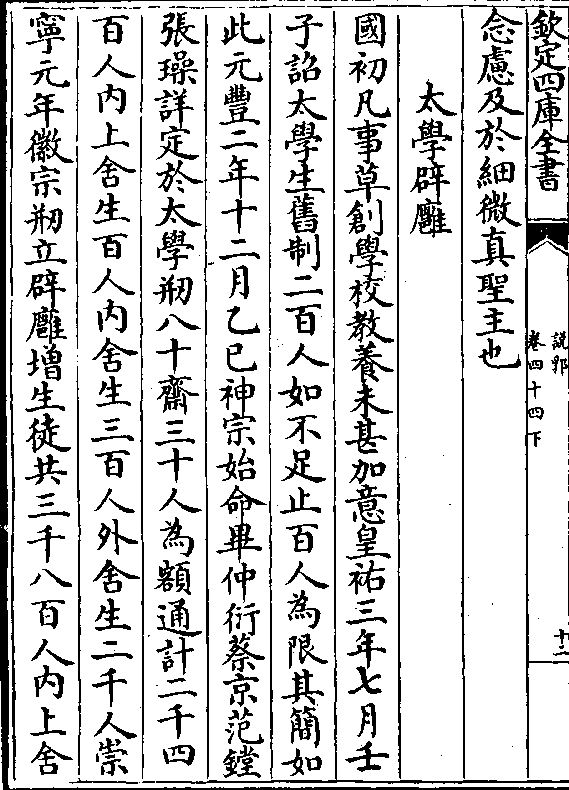 欽定四庫全書
說郛
卷四十四下
十二
念慮及於細微真聖主也
太學辟廱
國初凡事草創學校教養未甚加意皇祐三年七月壬
子詔太學生舊制二百人如不足止百人為限其簡如
此元豐二年十二月乙巳神宗始命畢仲衍蔡京范鏜
張璪詳定於太學剏八十齋三十人為額通計二千四
百人内上舍生百人内舍生三百人外舍生二千人崇
寧元年徽宗剏立辟廱增生徒共三千八百人内上舍